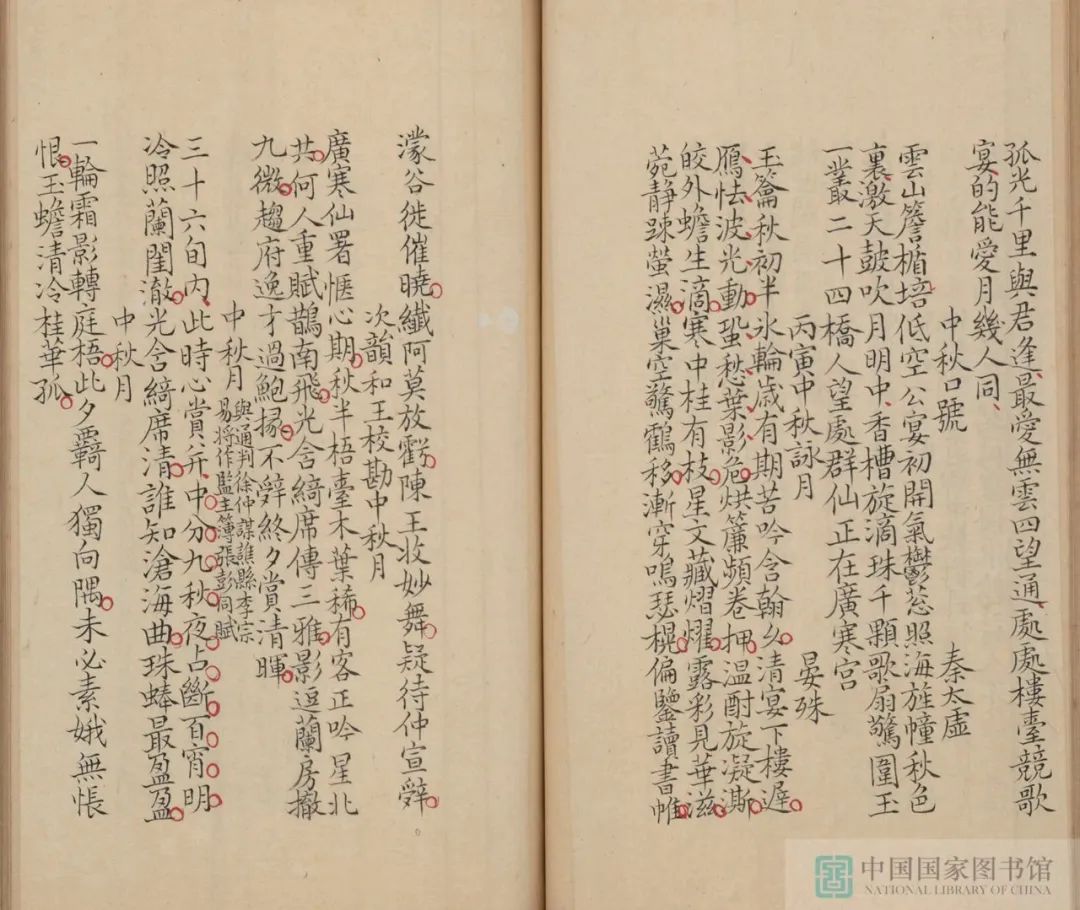 孤光千里與君逢最愛無雲四望通處處樓臺競歌
宴的能愛月幾人同
中秋口號 秦太虛
雲山簷楯培低空公宴初開氣鬱葱照海旌幢秋色
裏激天皷吹月明中香槽旋滴珠千顆歌扇驚圍玉
一叢二十四橋人望處群仙正在廣寒宮
丙寅中秋詠月 晏殊
玉籥秋初半氷輪歲有期苦吟含翰久清宴下樓遲
鴈怯波光動蛩愁葉影危烘簾頻卷押温酎旋凝澌
皎外蟾生滴寒中桂有枝星文藏熠燿露彩見華滋
苑静踈螢濕巢空驚鶴移漸穿鳴瑟幌偏鑒讀書帷
濛谷徒催曉纖阿莫放虧陳王收妙舞疑待仲宣辤
次韻和王校勘中秋月
廣寒仙署愜心期秋半梧臺木葉稀有客正吟星北
共何人重賦鵲南飛光含綺席傳三雅影逗蘭房撤
九微趨府逸才過鮑掾不辤終夕賞清暉
中秋月 與通判徐仲謀譙縣李宗
易將作監主簿張彭同賦
三十六旬内此時心賞并中分九秋夜占斷百宵明
冷照蘭閨澈光含綺席清誰知滄海曲珠蜯最盈盈
中秋月
一輪霜影轉庭梧此夕覊人獨向隅未必素娥無悵
恨玉蟾清冷桂華孤
中国国家图书馆
NATIONAL LIBRARY OF CHINA